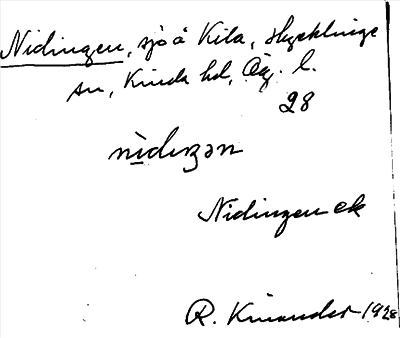 Nidingen, sjö å Kila, skycklinge
sn, Kinda hd, Ög. l.
28
nìdıŋən
Nidingen ek
R. Kinander 1928